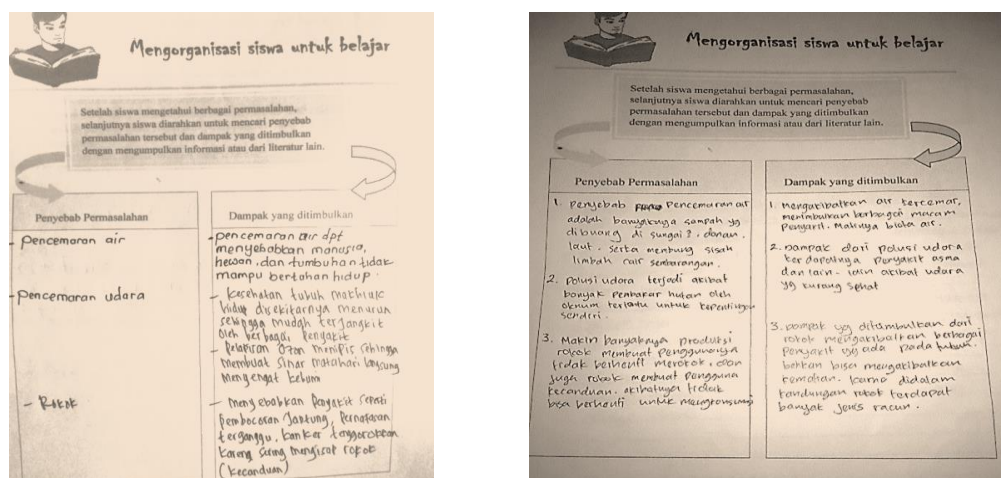 Mengorganisasi siswa untuk belajar
Setelah siswa mengetahui berbagai permasalahan,
selanjutnya siswa diarahkan untuk mencari penyebab
permasalahan tersebut dan dampak yang ditimbulkan
dengan mengumpulkan informasi atau dari literatur lain.
Penyebab Permasalahan
- Pencemaran air
- Pencemaran udara
- Rokok
Dampak yang ditimbulkan
- pencemaran air dpt
menyebabkan manusia,
hewan, dan tumbuhan tidak
mampu bertahan hidup.
- kesehatan tubuh makhluk
hidup disekitarnya menurun
sehingga mudah terjangkit
oleh berbagai Penyakit
- Pelapisan Ozon menipis sehingga
membuat sinar matahari langsung
mengengat kebumi
- menyebabkan Penyakit seperti
pembocoran Jantung, Pernafasan
terganggu, kanker tenggorokkan
karena sering mengisat rokok
(kecanduan)
Mengorganisasi siswa untuk belajar
Setelah siswa mengetahui berbagai permasalahan,
selanjutnya siswa diarahkan untuk mencari penyebab
permasalahan tersebut dan dampak yang ditimbulkan
dengan mengumpulkan informasi atau dari literatur lain.
Penyebab Permasalahan
1. Penyebab Pencemaran air
adalah banyaknya sampah yg
dibuang di sungai2, danau,
laut. serta membung sisah
limbah cair sembarangan.
2. Polusi udara terjadi akibat
banyak pembakar hutan oleh
oknum tertentu untuk kepentingan
sendiri.
3. Makin banyaknya produksi
rokok membuat penggunanya
tidak berhenti merokok, dan
juga rokok membuat pengguna
kecanduan. akibatnya tidak
bisa berhenti untuk mengkonsumsi
Dampak yang ditimbulkan
1. mengakibatkan air tercemar,
menimbulkan berbagai macam
penyakit. Matinya biota air.
2. Dampak dari polusi udara
terdapatnya penyakit asma
dan lain-lain akibat udara
yg kurang sehat
3. Dampak yg ditambulkan dari
rokok mengakibatkan berbagai
penyakit yg ada pada tubuh.
bahkan bisa mengakibatkan
kematian. karna didalam
kandungan rokok terdapat
banyak jenis racun.